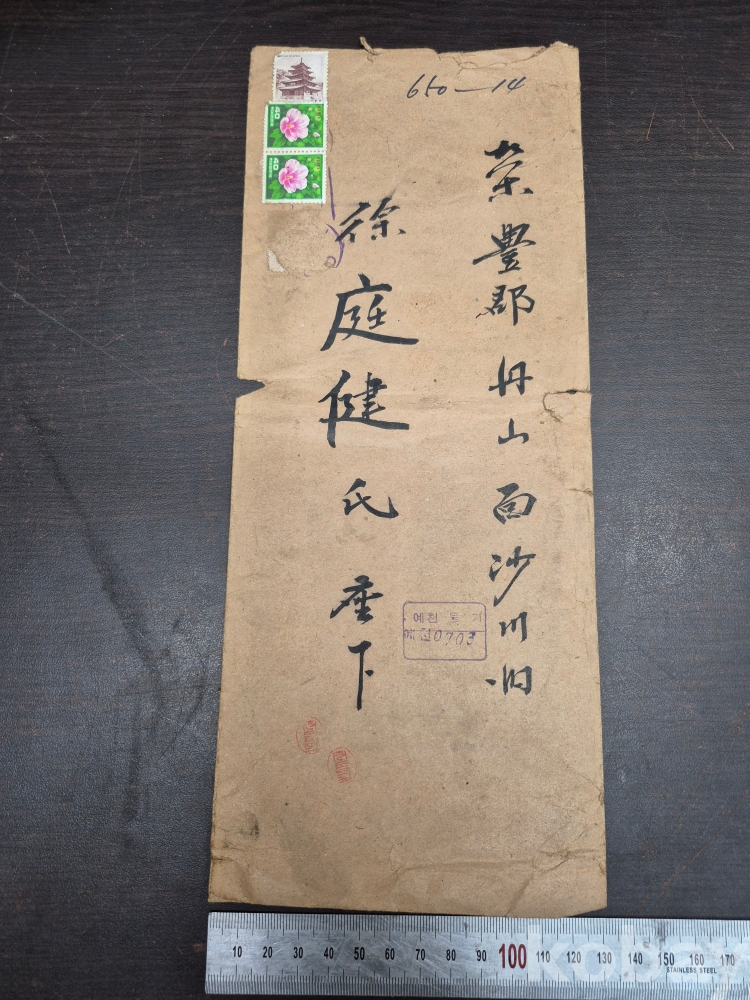 650-14
榮豊郡 丹山面 沙川洞
徐庭健 氏 座下
예천
예천0703
40
40
10 20 30 40 50 60 70 80 90 100 110 120 130 140 150 160 170
STAINLESS STEEL
kobay